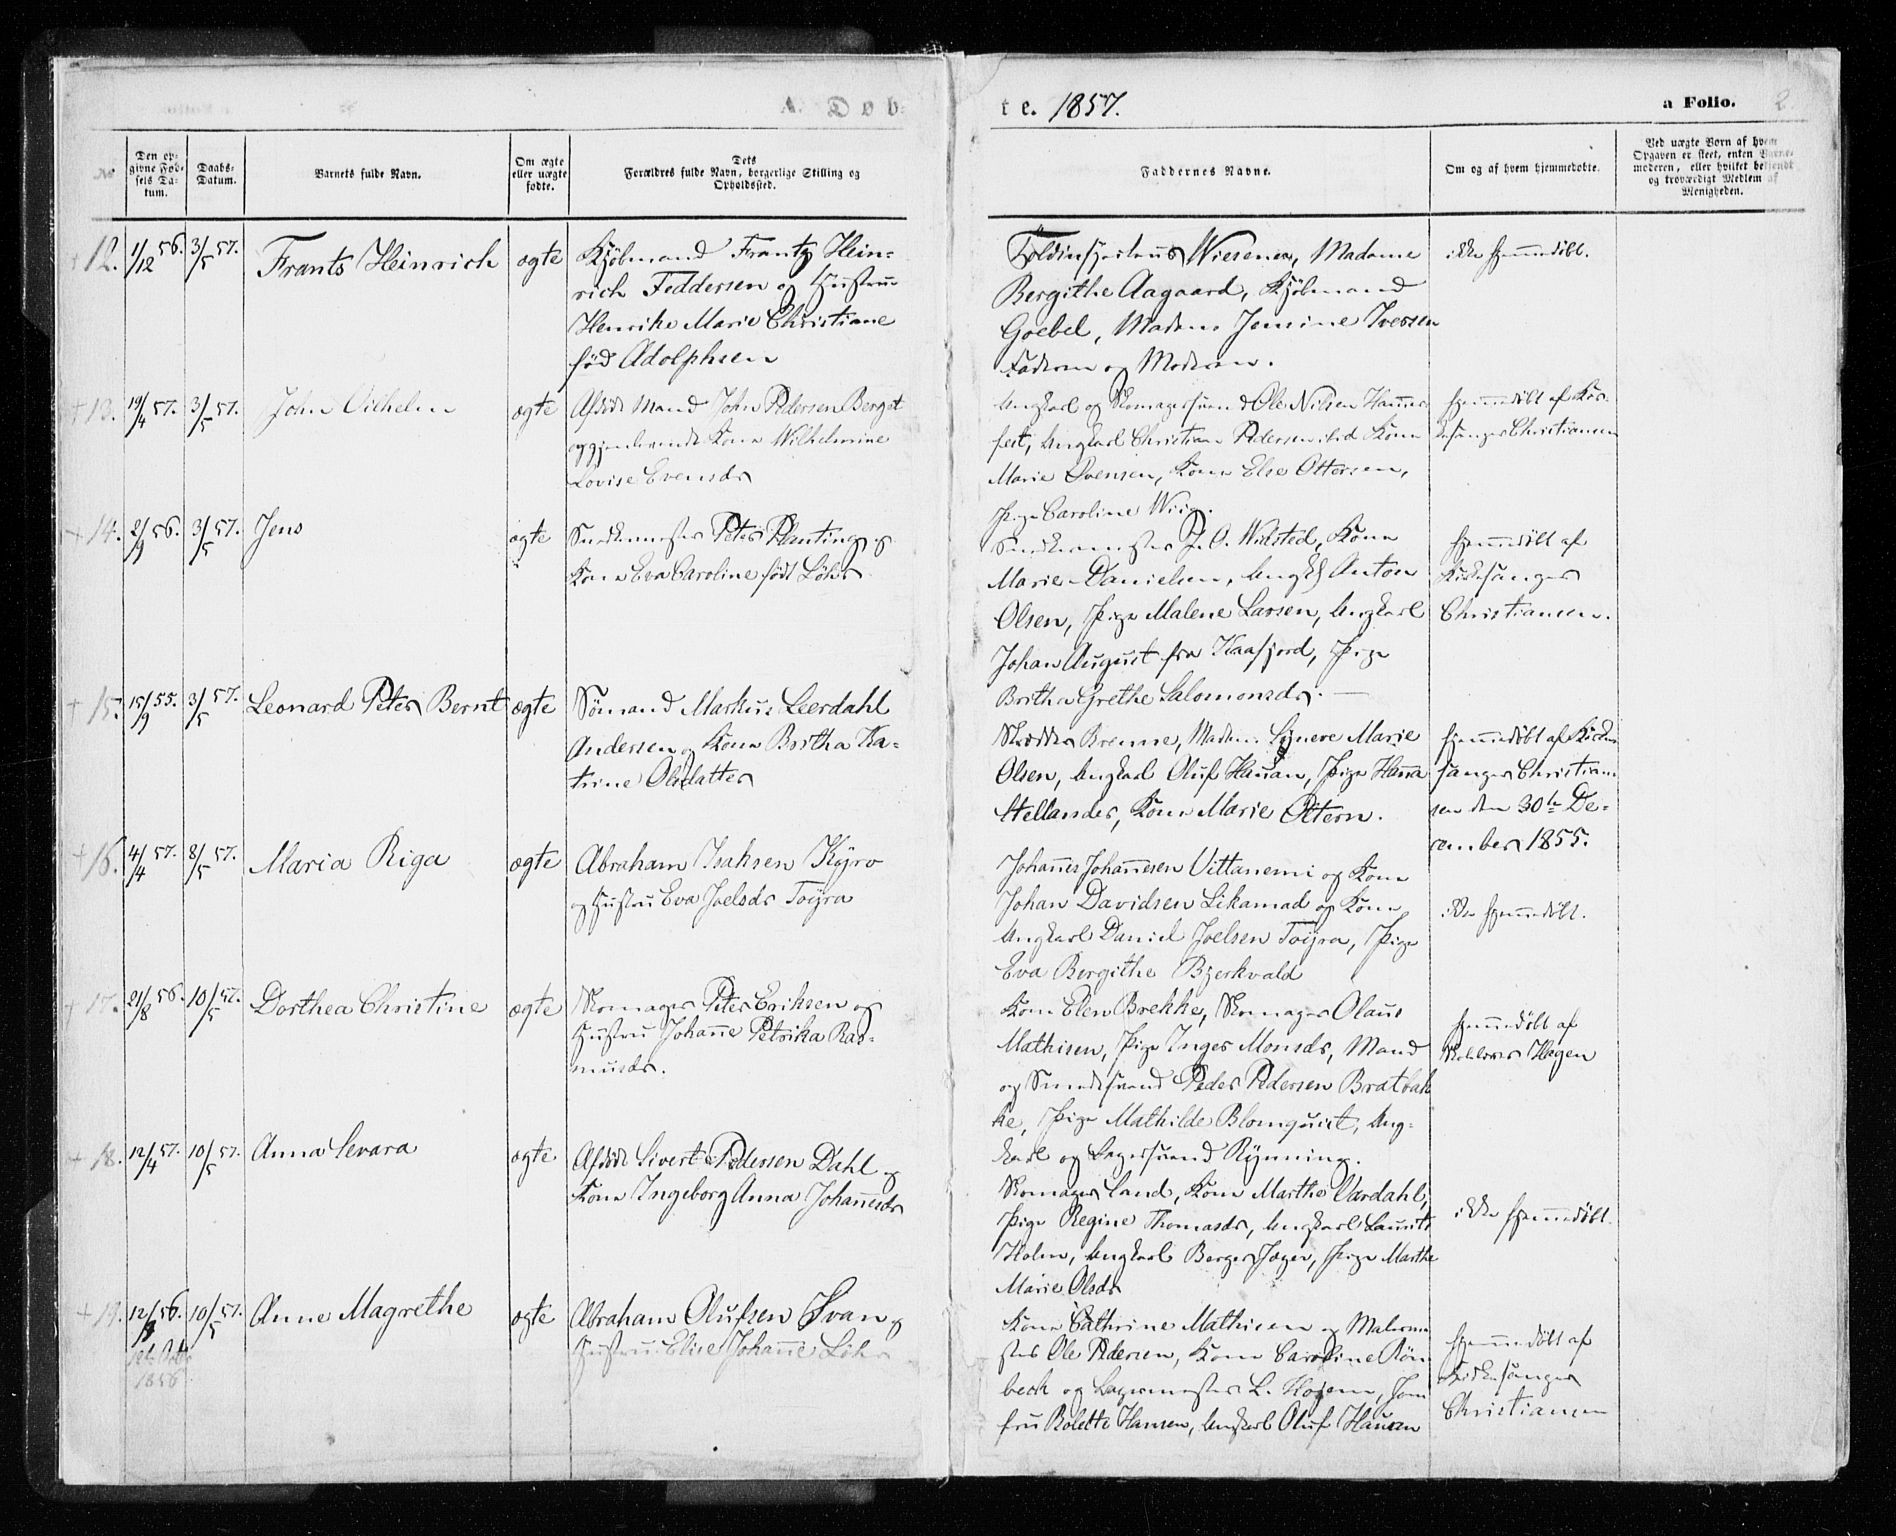 A. Døb-
te. 1857.
a Folio. 2
No
Den opgivne Fødsels Datum.
Daabs-Datum.
Barnets fulde Navn.
Om ægte eller uægte fødte.
Dets Forældres fulde Navn, borgerlige Stilling og Opholdssted.
Faddernes Navne.
Om og af hvem hjemmedøbte.
Ved uægte Børn af hvem Opgaven er skeet, enten Barnemoderen, eller hvilket bekjendt og troværdigt Medlem af Menigheden.
12. 1/12 56. 3/5 57. Frants Heinrich ægte
Kjöbmand Frantz Hein-
rich Feddersen og Hustrue
Henrike Marie Christiane
föd Adolphsen
Wiesener, Madame
Bergithe Aagaard, Kjöbmand
Goebel, Madame Jensine Iversen
Faderen og Moderen.
ikke hjemmedöbt.
13. 19/4 57. 3/5 57. John Vilhelm ægte
Afdöde Mand John Pedersen Berget
og gjenlevende Kone Wilhelmine
Lovise Evensdr
Ungkarl og Skomagersvend Ole Nilsen Hammer-
fest, Ungkarl Christian Pedersen, Kone
Marie Svensen, Kone Else Ottersen,
Pige Caroline Wiig.
hjemmedöbt af Kir-
kesanger Christiansen
14. 2/9 56. 3/5 57. Jens ægte
Snedkermester Peter Planting og
Kone Eva Caroline født Löhr
Snedkermester J. O. Wilsted, Kone
Marie Danielsen, Ungk. Anton
Olsen, Pige Malene Larsen, Ungkarl
Johan August fra Kaafjord, Pige
Britha Grethe Salomonsdr. —
hjemmedöbt af
Kirkesanger
Christiansen.
15. 15/9 55. 3/5 57. Leonard Peter Bernt ægte
Sömand Markus Leerdahl
Andersen og Kone Britha Ka-
trine Olsdatter
Skrædder Bremse, Madam Signere Marie
Olsen, Ungkarl Oluf Hauan, Pige Hanna
Stellander, Kone Marie Ottern.
hjemmedöbt af Kirke-
sanger Christian-
sen den 30te De-
cember 1855.
16. 4/4 57. 8/5 57. Maria Riga ægte
Abraham Isaksen Kÿro
og Hustru Eva Joelsdr Töÿra
Johannes Johannesen Vittanemi og Kone
Johan Davidsen Likamad og Kone
Ungkarl Daniel Joelsen Töÿra, Pige
Eva Bergithe Bjerkvald
ikke hjemmedöbt.
17. 21/8 56. 10/5 57. Dorthea Christine ægte
Skomager Peter Eriksen og
Hustru Johanne Petrika Ras-
musdr.
Kone Elen Brekke, Skomager Olaus
Mathisen, Pige Inger Monsdr, Mand
og Smedesvend Peder Pedersen Bratbak-
ke, Pige Mathilde Blomquist, Ung-
karl og Bagersvend Rÿnning.
hjemmedöbt af
Skolelærer Hagen
18. 12/4 57. 10/5 57. Anna Sevara ægte
Afdöde Sivert Pedersen Dahl og
Kone Ingeborg Anna Johannesdr
Skomager Land, Kone Marthe Vardahl,
Pige Regine Thomasdr, Ungkarl Laurits
Holm, Ungkarl Berger Jæger, Pige Marthe
Marie Olsdr
ikke hjemmedöbt.
19. 12/9 56. 10/5 57. Anne Magrethe ægte
1856.
Abraham Olufsen Svan og
Hustru Elise Johanne Löhr
Kone Cathrine Mathisen og Malerme-
ster Ole Pedersen, Kone Caroline Rön-
beck og Bagermester L. Hojem, Jom-
fru Bolette Hansen, Ungkarl Oluf Hauan
hjemmedöbt af
Kirkesanger
Christiansen